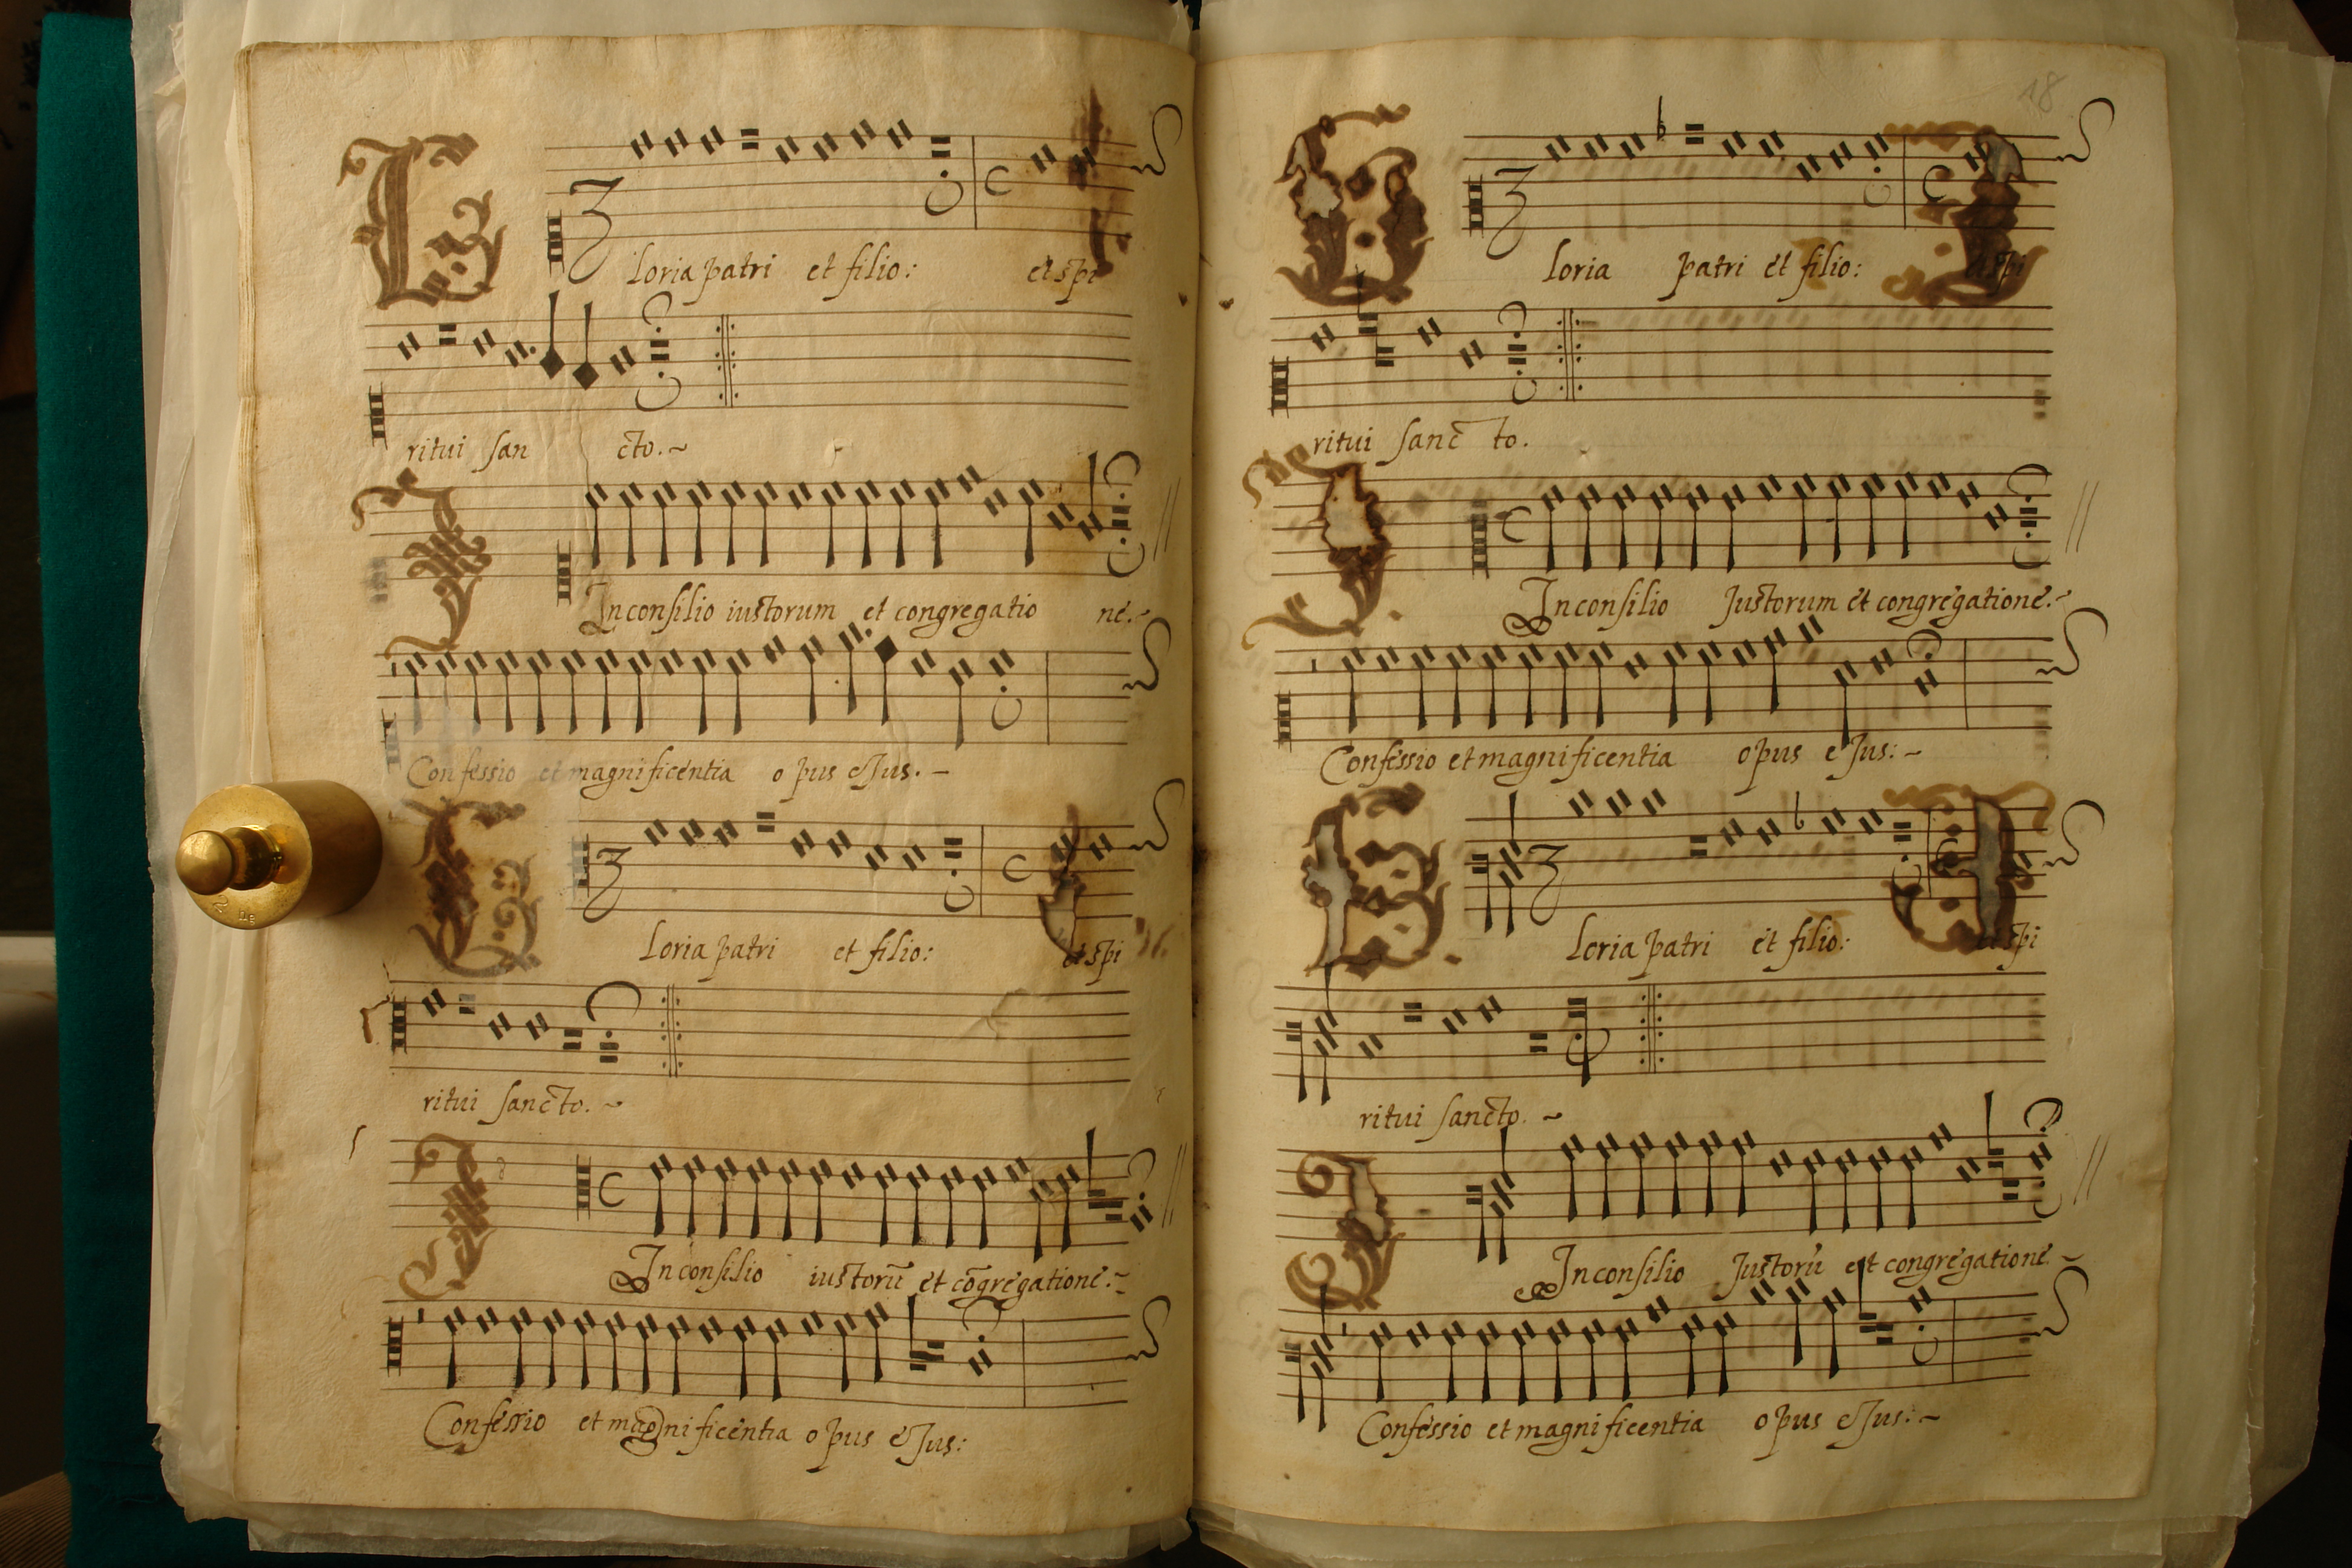 Gloria patri et filio: et spi
ritui san cto.~
Inconsilio iustorum et congregatio ne.~
Confessio et magnificentia o pus eJus.~
Gloria patri et filio: et spi
ritui sancto.~
Inconsilio iustorū et cōgregatione.~
Confessio et magnificentia o pus eJus:
18
Gloria patri et filio: et spi
ritui sanc to.
Inconsilio Justorum et congregatione.~
Confessio et magnificentia opus eJus:~
Gloria patri et filio: et spi
ritui sancto. ~
Inconsilio Justorū et congregatione ~
Confessio et magnificentia opus eJus:~